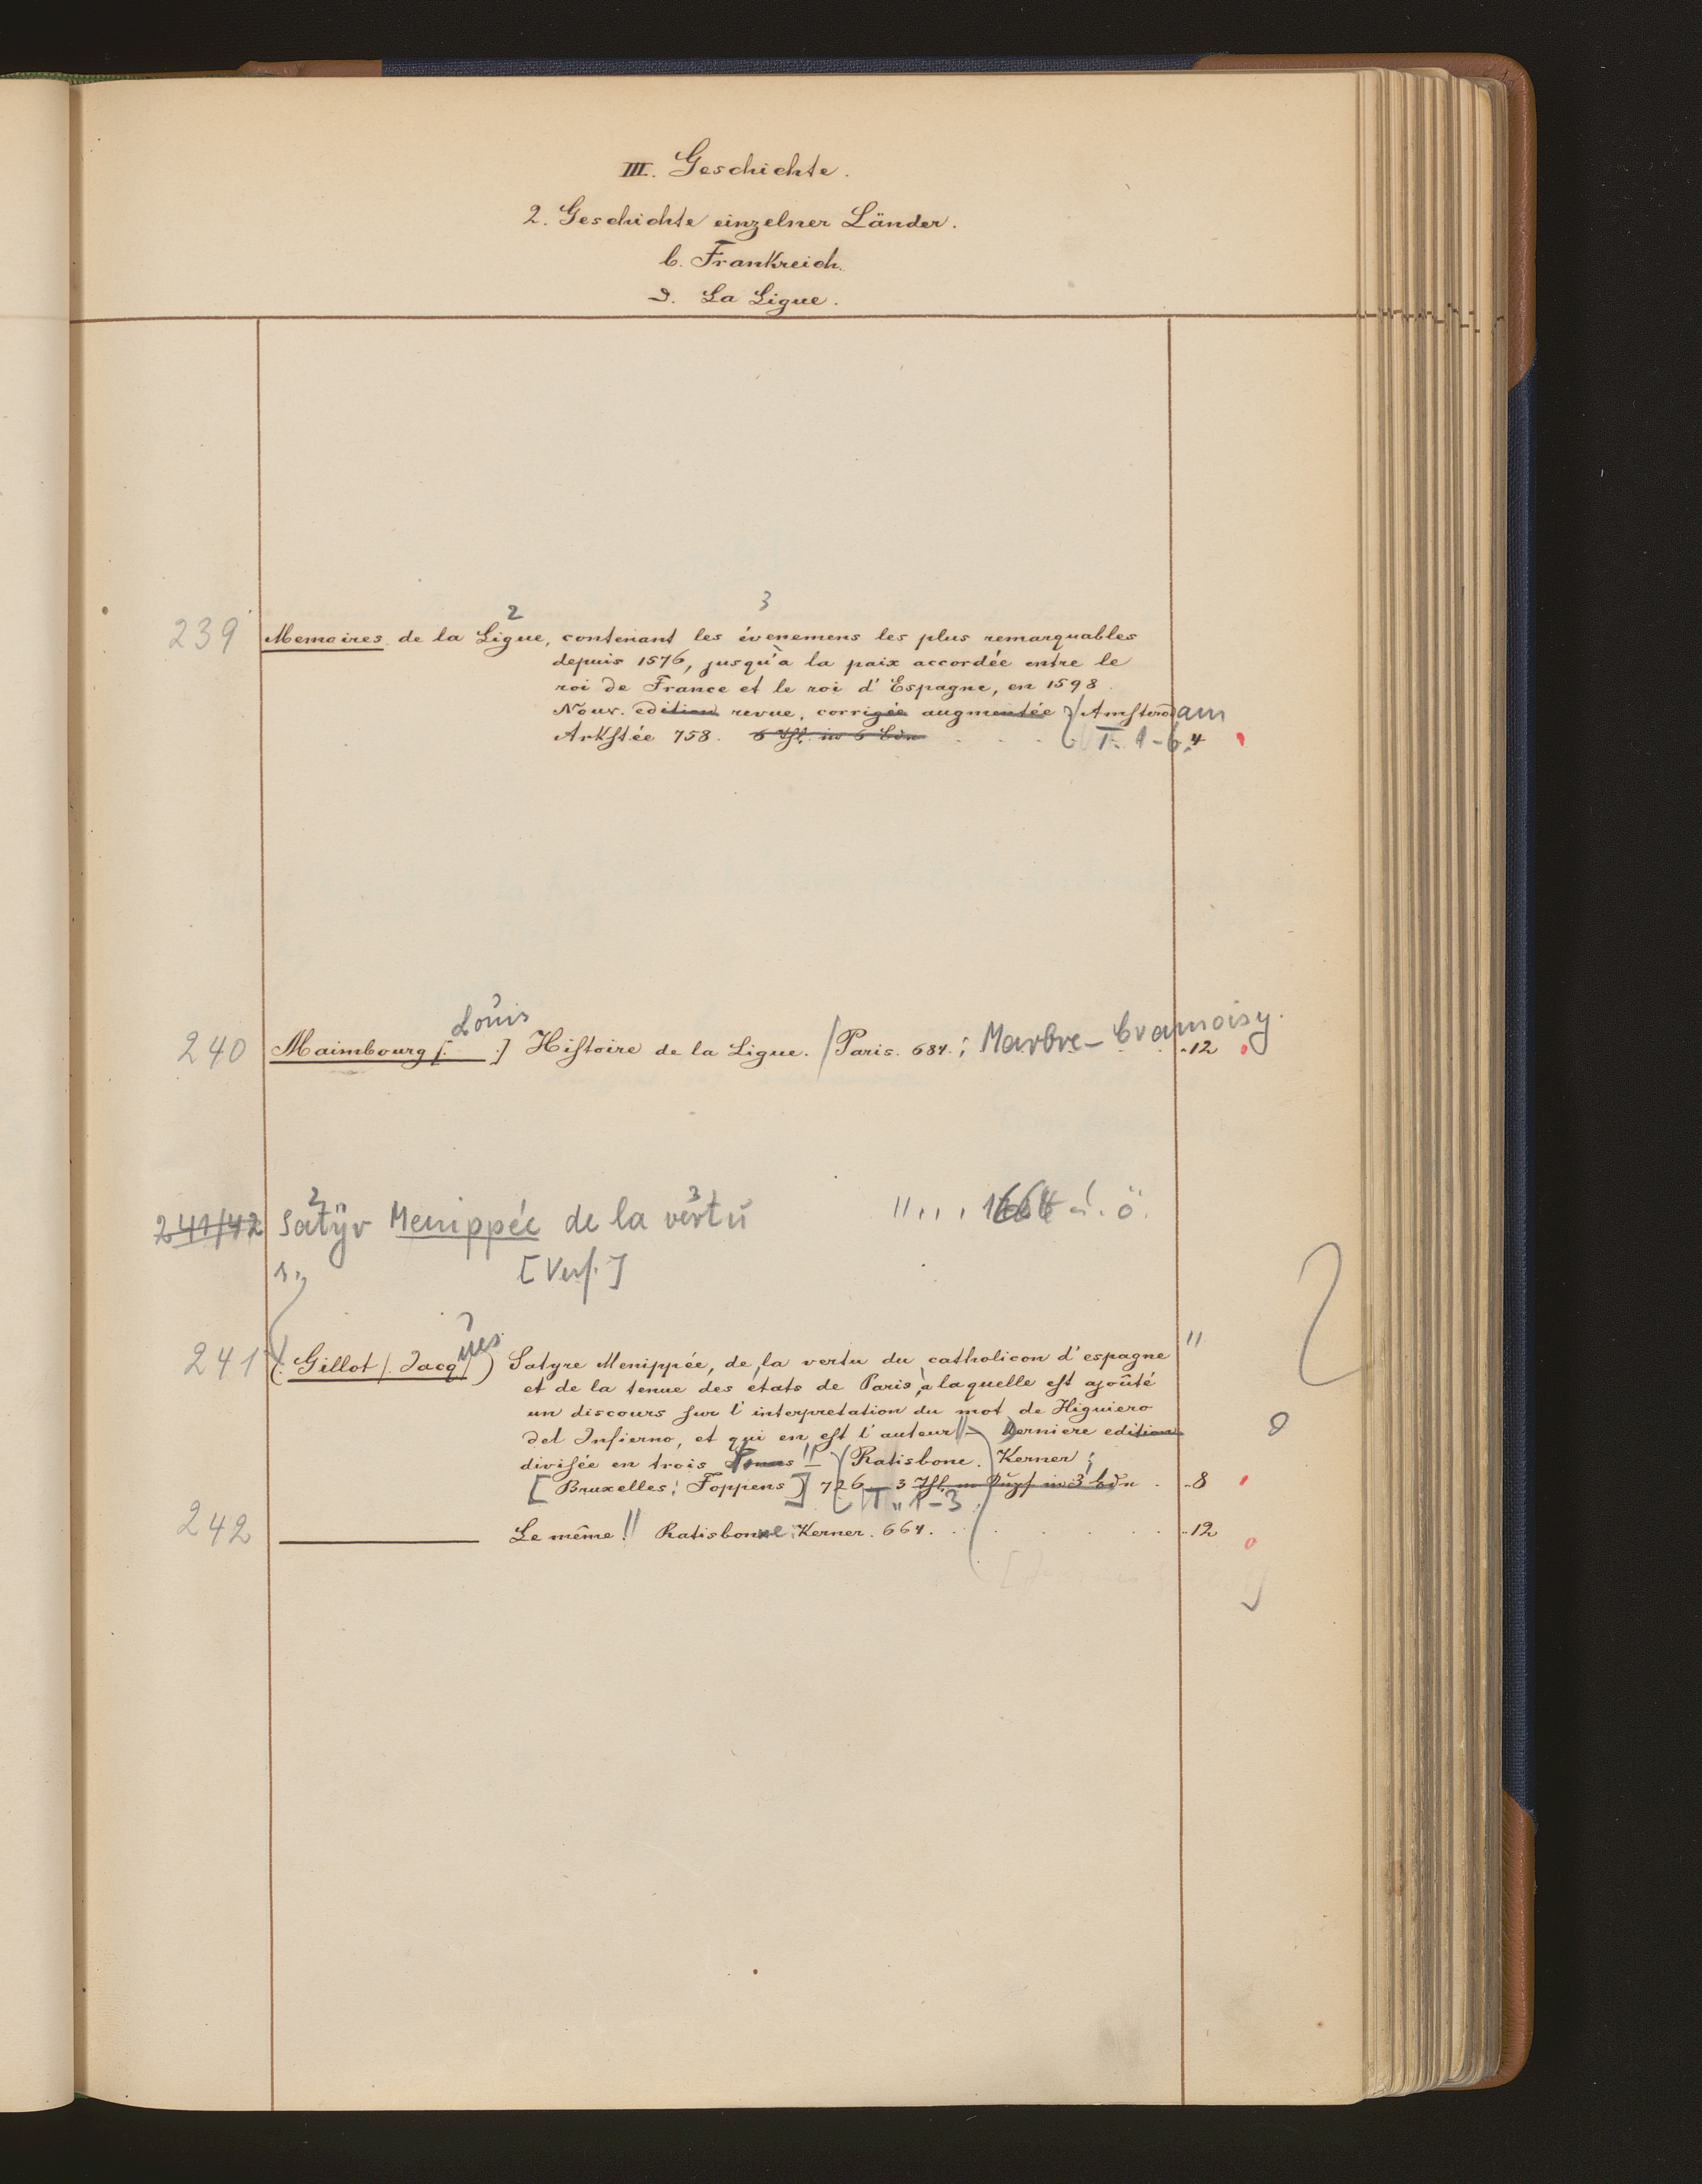 III. Geschichte.
2. Geschichte einzelner Länder.
b. Frankreich.
d. La Ligue.
2 3
239 Memoires de la Ligue, contenant les évenemens les plus remarquables
depuis 1576, jusqu'à la paix accordée entre le
roi de France et le roi d'Espagne, en 1598.
Nouv. edition revue, corrigée augmentée Amsterdam
Arkstée 758. 6 Thl. in 6 Bdn T. 1-6. 4
Louis
240 Maimbourg [. .] Histoire de la Ligue. / Paris. 684.; Marbre-Cramoisy. .12
2 3
241/42 Satyr Menippée de la vertu 1664
[Verf.]
241 (Gillot /. Jacques) Satyre Menippée, de la vertu du catholicon d'espagne
et de la tenue des états de Paris, à laquelle est ajoûté
un discours sur l'interpretation du mot de Higuiero
del Infierno, et qui en est l'auteur // Derniere edition
divisée en trois Tomes Ratisbone. Kerner;
[Bruxelles: Foppens] 726 3 Thl. in 3 Bdn .8
T. 1-3
242 Le même! Ratisbonne: Kerner. 664. .12